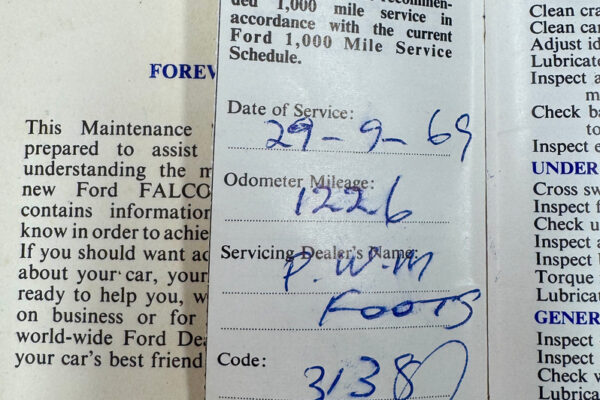 FOREW
This Maintenance
prepared to assist
understanding the m
new Ford FALCO
contains information
know in order to achie
If you should want ad
about your car, your
ready to help you, w
on business or for
world-wide Ford Dea
your car's best friend
ded 1,000 mile service in
accordance with the current
Ford 1,000 Mile Service
Schedule.
Date of Service:
29-9-69
Odometer Mileage:
1226
Servicing Dealer's Name:
P.W.M
FOOTS
Code:
3138
Clean cra
Clean car
Adjust id
Lubricate
Inspect a
m
Check ba
to
Inspect e
UNDER
Cross sw
Inspect f
Check u
Inspect a
Inspect b
Torque
Lubricat
GENER
Inspect
Inspect
Check w
Lubrica